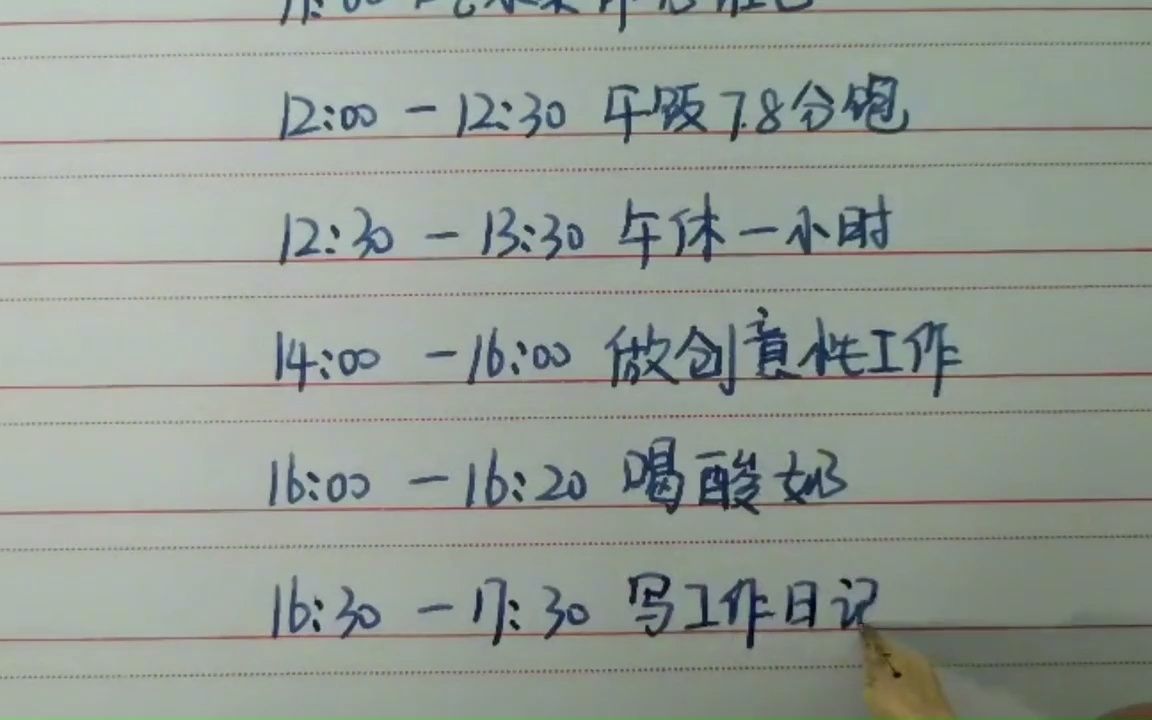 12:00 - 12:30 午饭7.8分饱
12:30 - 13:30 午休一小时
14:00 - 16:00 做创意性工作
16:00 - 16:20 喝酸奶
16:30 - 17:30 写工作日记